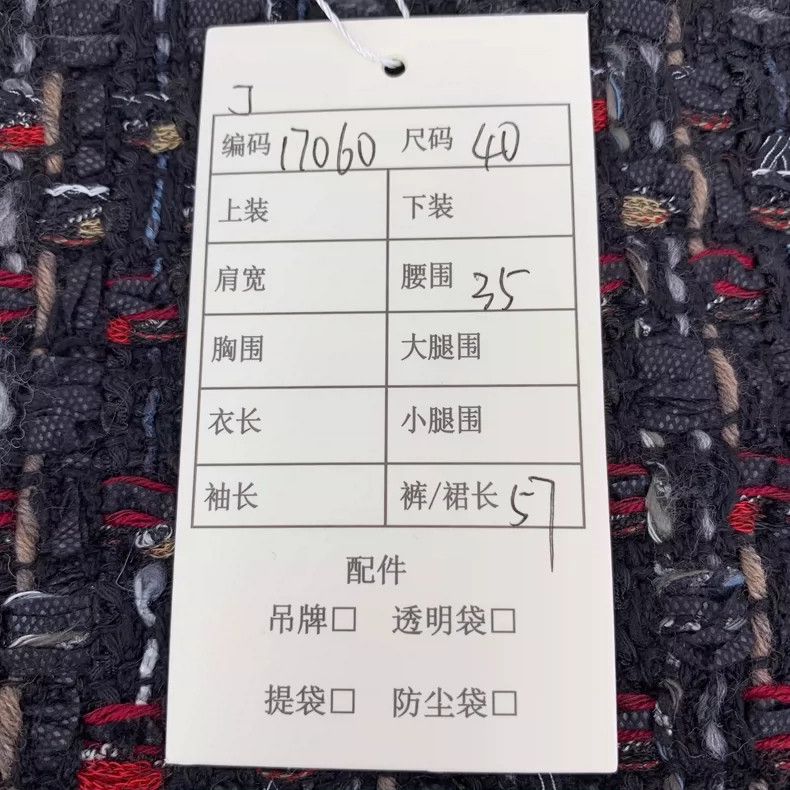 J
编码 17060 尺码 40
上装 下装
肩宽 腰围 35
胸围 大腿围
衣长 小腿围
袖长 裤/裙长 57
配件
吊牌□ 透明袋□
提袋□ 防尘袋□